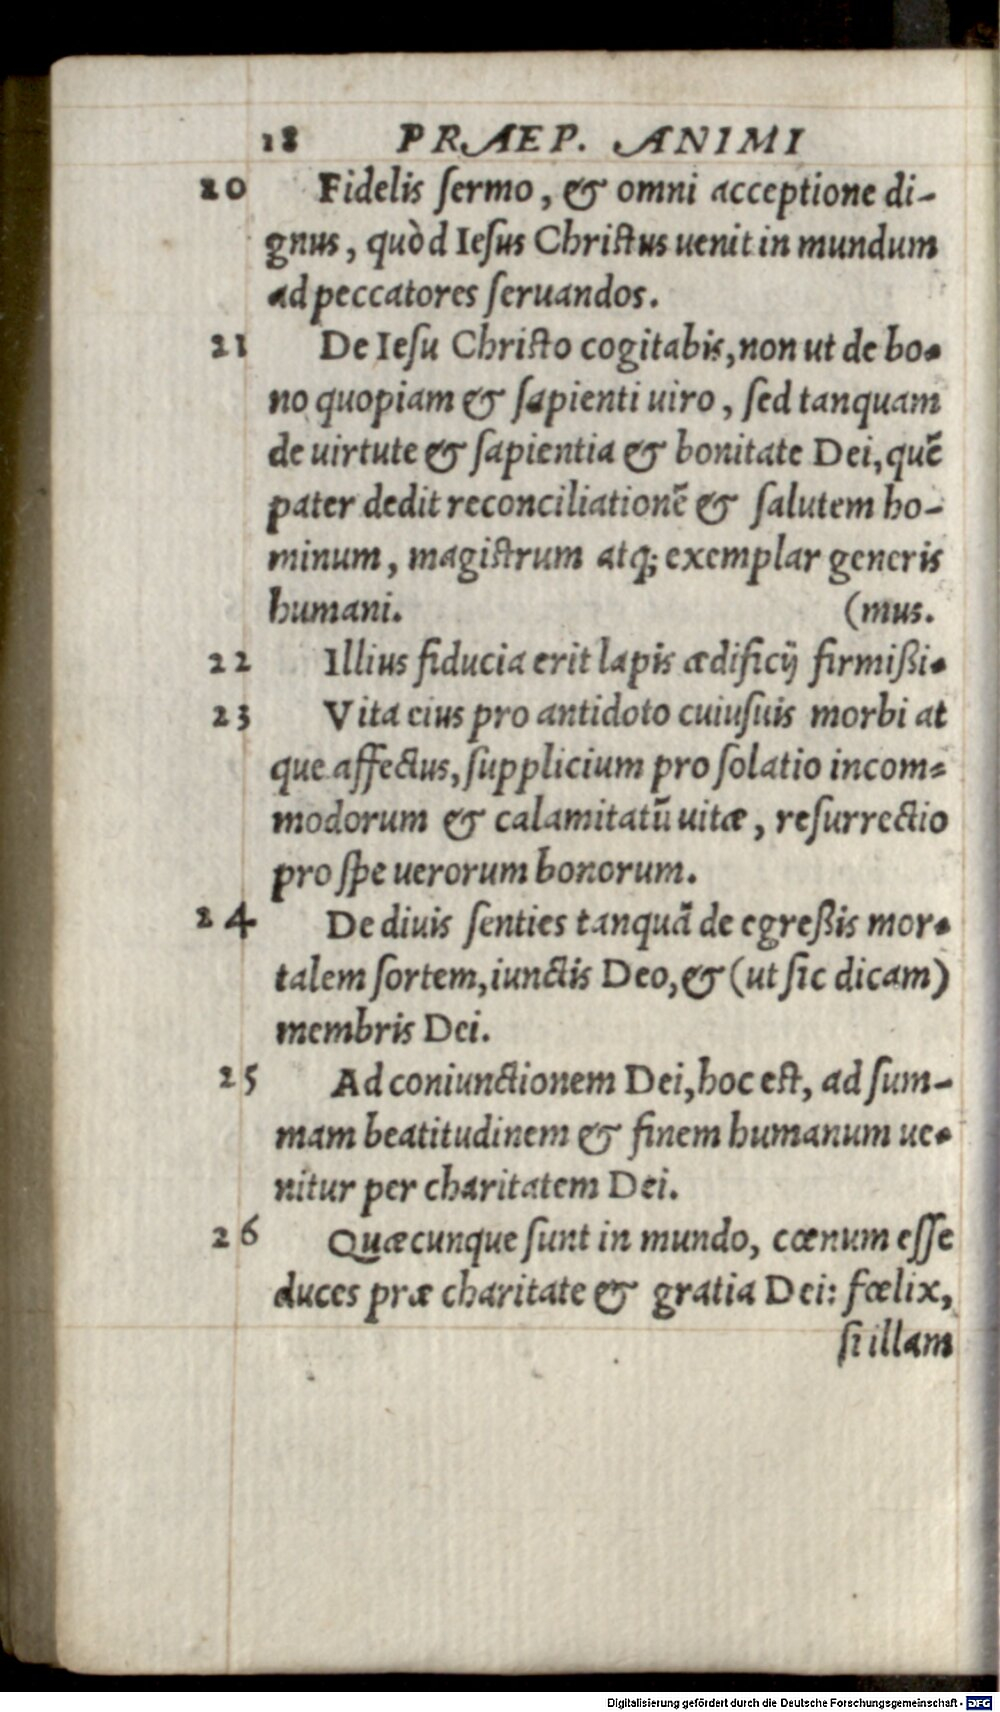 18 PRAEP. ANIMI
20 Fidelis ſermo, & omni acceptione di-
gnus, quòd Ieſus Chriſtus uenit in mundum
ad peccatores ſeruandos.
21 De Ieſu Chriſto cogitabis, non ut de bo-
no quopiam & ſapienti uiro, ſed tanquam
de uirtute & ſapientia & bonitate Dei, quẽ
pater dedit reconciliationẽ & ſalutem ho-
minum, magiſtrum atq; exemplar generis
humani. (mus.
22 Illius fiducia erit lapis ædificij firmißi-
23 Vita eius pro antidoto cuiuſuis morbi at
que affectus, ſupplicium pro ſolatio incom-
modorum & calamitatũ uitæ, reſurrectio
pro ſpe uerorum bonorum.
24 De diuis ſenties tanquã de egreßis mor-
talem ſortem, iunctis Deo, & (ut ſic dicam)
membris Dei.
25 Ad coniunctionem Dei, hoc eſt, ad ſum-
mam beatitudinem & finem humanum ue-
nitur per charitatem Dei.
26 Quæcunque ſunt in mundo, cœnum eſſe
duces præ charitate & gratia Dei: fœlix,
ſi illam
Digitalisierung gefördert durch die Deutsche Forschungsgemeinschaft - DFG